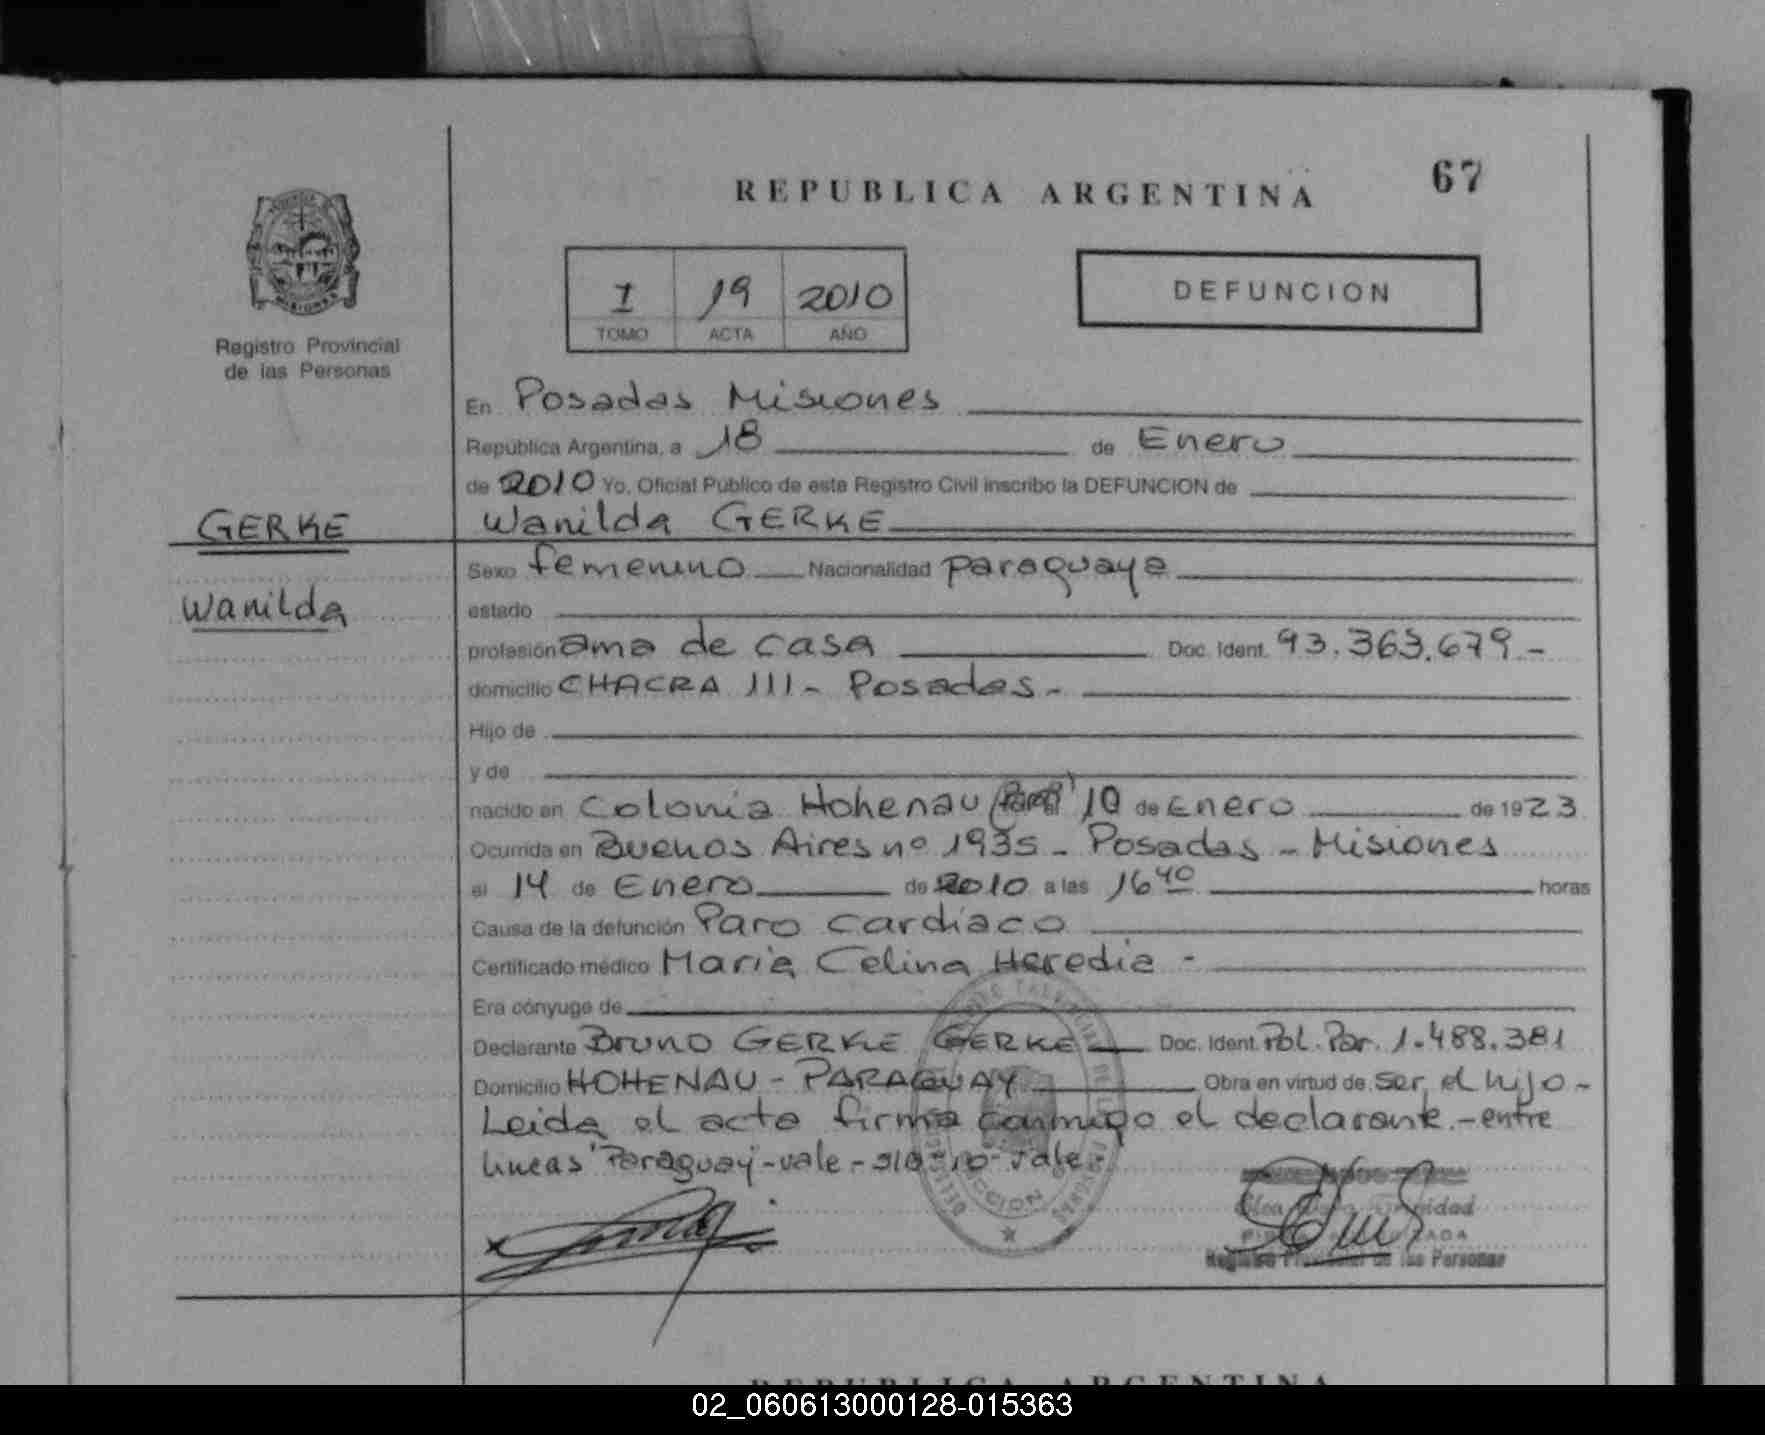 67
REPUBLICA ARGENTINA
I 19 2010
TOMO ACTA AÑO
DEFUNCION
MISIONES
Registro Provincial
de las Personas
En Posadas Misiones
República Argentina, a 18 de Enero
de 2010 Yo, Oficial Público de este Registro Civil inscribo la DEFUNCION de
GERKE
Wanilda GERKE
Sexo femenino Nacionalidad paraguaya
Wanilda
estado
profesión ama de casa Doc. Ident. 93.363.679.-
domicilio CHACRA 111- Posadas-
Hijo de
y de
nacido en Colonia Hohenau 10 de Enero de 1923
Ocurrida en Buenos Aires nº 1935 - Posadas - Misiones
el 14 de Enero de 2010 a las 16 40 horas
Causa de la defunción Paro cardiaco
Certificado médico Maria Celina Heredia -
Era cónyuge de
Declarante Bruno GERKE GERKE Doc. Ident. Pol. Par. 1.488.381
Domicilio HOHENAU - PARAGUAY Obra en virtud de ser el hijo-
Leida el acta firma conmigo el declarante.-entre
lineas "Paraguay-vale- 10- vale
Registro Provincial de las Personas
REPUBLICA ARGENTINA
02_060613000128-015363